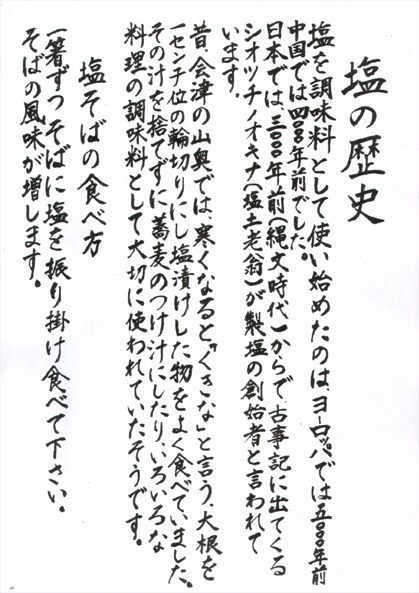 塩の歴史
塩を調味料として使い始めたのは、ヨーロッパでは五〇〇〇年前
中国では四〇〇〇年前でした。
日本では、三〇〇〇年前(縄文時代)からで、古事記に出てくる
シオツチノオキナ(塩土老翁)が製塩の創始者と言われて
います。
昔、会津の山奥では、寒くなると「くきな」と言う、大根を
一センチ位の輪切りにし塩漬けした物をよく食べていました。
その汁を捨てずに蕎麦のつけ汁にしたり、いろいろな
料理の調味料として大切に使われていたそうです。
塩そばの食べ方
一箸ずつそばに塩を振り掛け食べて下さい。
そばの風味が増します。